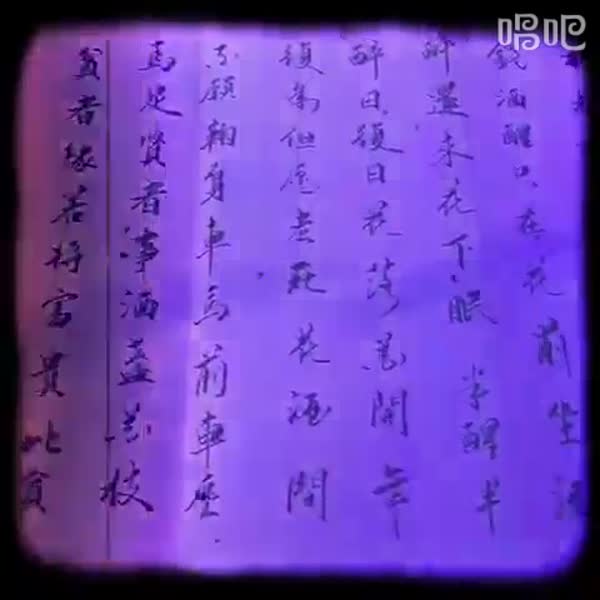 唱吧
錢酒醒只在花前坐酒
醉還來花下眠半醒半
醉日復日花落花開年
復為但願老死花酒間
不願鞠身車馬前車塵
馬足賢者事酒盞花枝
貧者緣若將富貴比貧